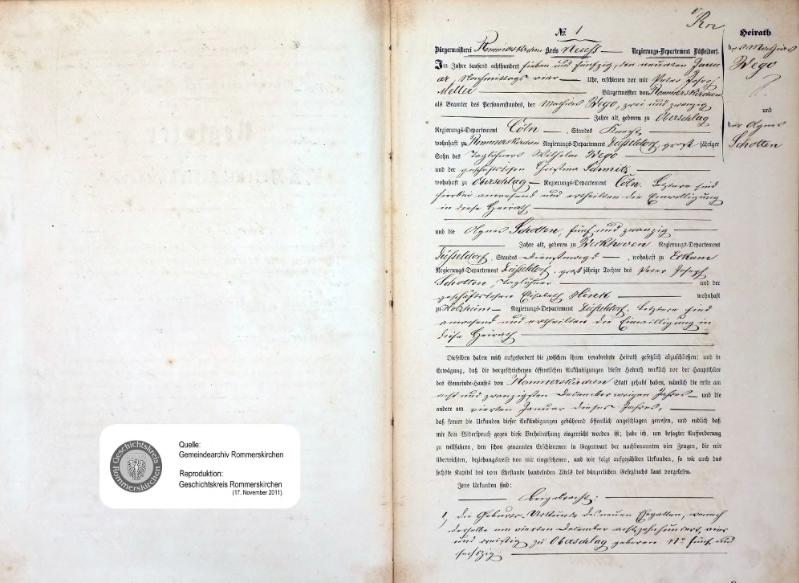 № 1
Heirath
Bürgermeisterei Rommerskirchen Kreis Neuss Regierungs-Departement Düsseldorf.
Im Jahre tausend achthundert sieben und fünfzig, den neunten Janu-
ar, Nachmittags vier Uhr, erschienen vor mir Peter Joseph
Bürgermeister von Rommerskirchen
als Beamten des Personenstandes, der Mathias Wego, zwei und zwanzig
Jahre alt, geboren zu Oberschlag
Regierungs-Departement Cöln, Standes Knecht,
wohnhaft zu Rommerskirchen Regierungs-Departement Düsseldorf, groß jähriger
Sohn des Taglöhners Wilhelm Wego
und der geschäftslosen Christina Schmitz
wohnhaft zu Oberschlag Regierungs-Departement Cöln. Letztere sind
hierbei anwesend und ertheilten die Einwilligung
in diese Heirath
und die Agnes Scholten, fünf und zwanzig
Jahre alt, geboren zu Regierungs-Departement
Düsseldorf, Standes Dienstmagd, wohnhaft zu Eckum
Regierungs-Departement Düsseldorf, groß jährige Tochter des Peter Joseph
Scholten, Taglöhner und der
geschäftslosen Elisabeth wohnhaft
zu Holzheim Regierungs-Departement Düsseldorf. Letztere sind
anwesend und ertheilten die Einwilligung in
diese Heirath
Dieselben haben mich aufgefordert die zwischen ihnen verabredete Heirath gesetzlich abzuschließen; und in
Erwägung, daß die vorgeschriebenen öffentlichen Ankündigungen dieser Heirath wirklich vor der Hauptthüre
des Gemeinde-Hauses von Rommerskirchen Statt gehabt haben, nämlich die erste am
acht und zwanzigsten Dezember vorigen Jahres und die
andere am vierten Januar dieses Jahres,
daß ferner die Urkunden dieser Ankündigungen gebührend öffentlich angeschlagen gewesen, und endlich daß
mir kein Widerspruch gegen diese Verheirathung eingereicht worden ist; habe ich, um besagter Aufforderung
zu willfahren, den schon genannten Erschienenen in Gegenwart der nachbenannten vier Zeugen, die mir
überreichten, beziehungsweise von mir eingesehenen, und wie folgt aufgezählten Urkunden, so wie auch das
sechste Kapitel des vom Ehestande handelnden Titels des bürgerlichen Gesetzbuchs laut vorgelesen.
Jene Urkunden sind:
beigebracht:
1, die Geburts-Urkunde des neuen Ehegatten, wonach
derselbe am vierten Dezember achtzehnhundert vier
und dreißig zu Oberschlag geboren № fünf und
sechzig
der Mathias
Wego
und
der Agnes
Scholten
Geschichtskreis
Rommerskirchen
Quelle:
Gemeindearchiv Rommerskirchen
Reproduktion:
Geschichtskreis Rommerskirchen
(17. November 2011)